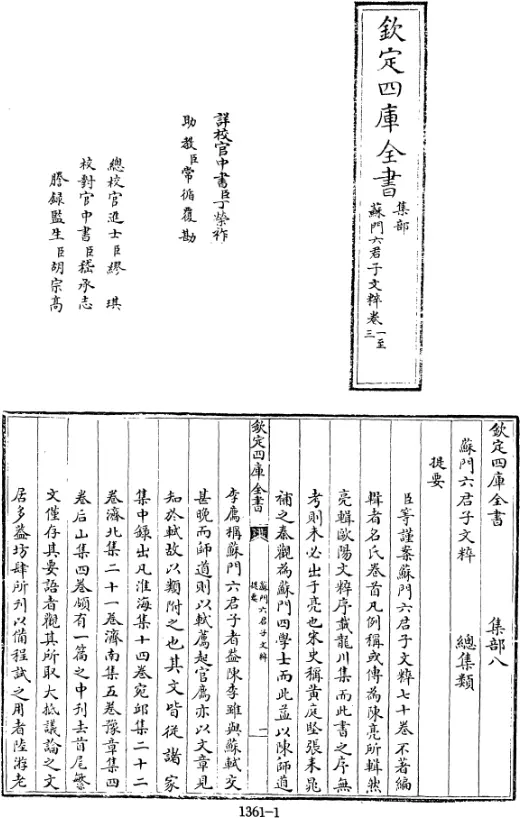 欽定四庫全書
集部
蘇門六君子文粹卷一至三
詳校官中書臣丁榮祚
助教臣常循覆勘
總校官進士臣繆琪
校對官中書臣嵇承志
謄錄監生臣胡宗高
欽定四庫全書 集部八
蘇門六君子文粹 總集類
提要
臣等謹案蘇門六君子文粹七十卷不著編
輯者名氏卷首凡例稱或傳為陳亮所輯然
亮輯歐陽文粹序載龍川集而此書之序無
考則未必出于亮也宋史稱黃庭堅張耒晁
補之秦觀為蘇門四學士而此益以陳師道
欽定四庫全書
蘇門六君子文粹
提要
一
李廌稱蘇門六君子者蓋陳李雖與蘇軾交
甚晚而師道則以軾薦起官廌亦以文章見
知於軾故以類附之也其文皆從諸家
集中錄出凡淮海集十四卷宛邱集二十二
卷濟北集二十一卷濟南集五卷豫章集四
卷后山集四卷頗有一篇之中刊去首尾繁
文僅存其要語者觀其所取大抵議論之文
居多蓋坊肆所刊以備程試之用者陸游老
1361-1